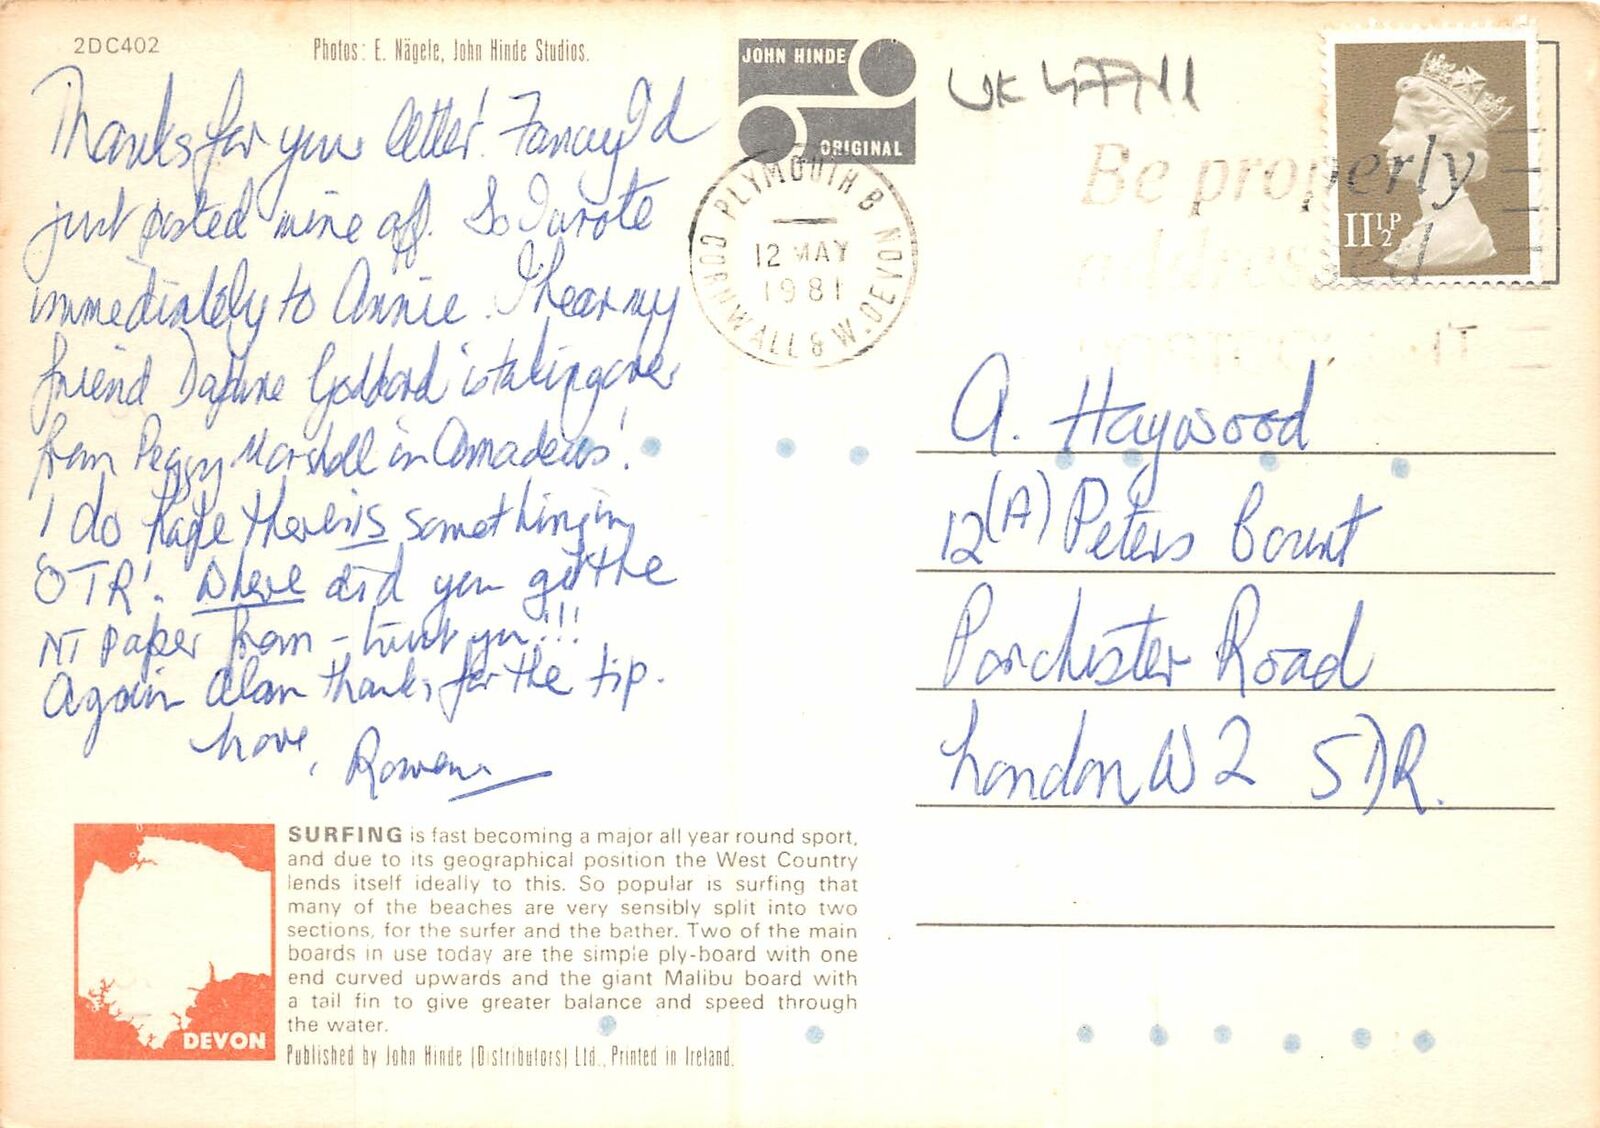 2DC402
Photos: E. Nägele, John Hinde Studios.
JOHN HINDE
ORIGINAL
UK 47711
Thanks for your letter! Fancy I'd
just posted mine off. So I wrote
immediately to Annie. I hear my
friend Daphne Goddard is taking over
from Peggy Marshall in Amadeus!
I do hope there is something in
OTR! Where did you get the
NT paper from - trust you!!!
Again Alan thanks for the tip.
Love,
Rowena
PLYMOUTH B
12 MAY
1981
CORNWALL & W. DEVON
Be properly
addressed
11½P
A. Haywood
12(A) Peters Court
Porchester Road
London W2 5DR.
SURFING is fast becoming a major all year round sport,
and due to its geographical position the West Country
lends itself ideally to this. So popular is surfing that
many of the beaches are very sensibly split into two
sections, for the surfer and the bather. Two of the main
boards in use today are the simple ply-board with one
end curved upwards and the giant Malibu board with
a tail fin to give greater balance and speed through
the water.
DEVON
Published by John Hinde (Distributors) Ltd., Printed in Ireland.